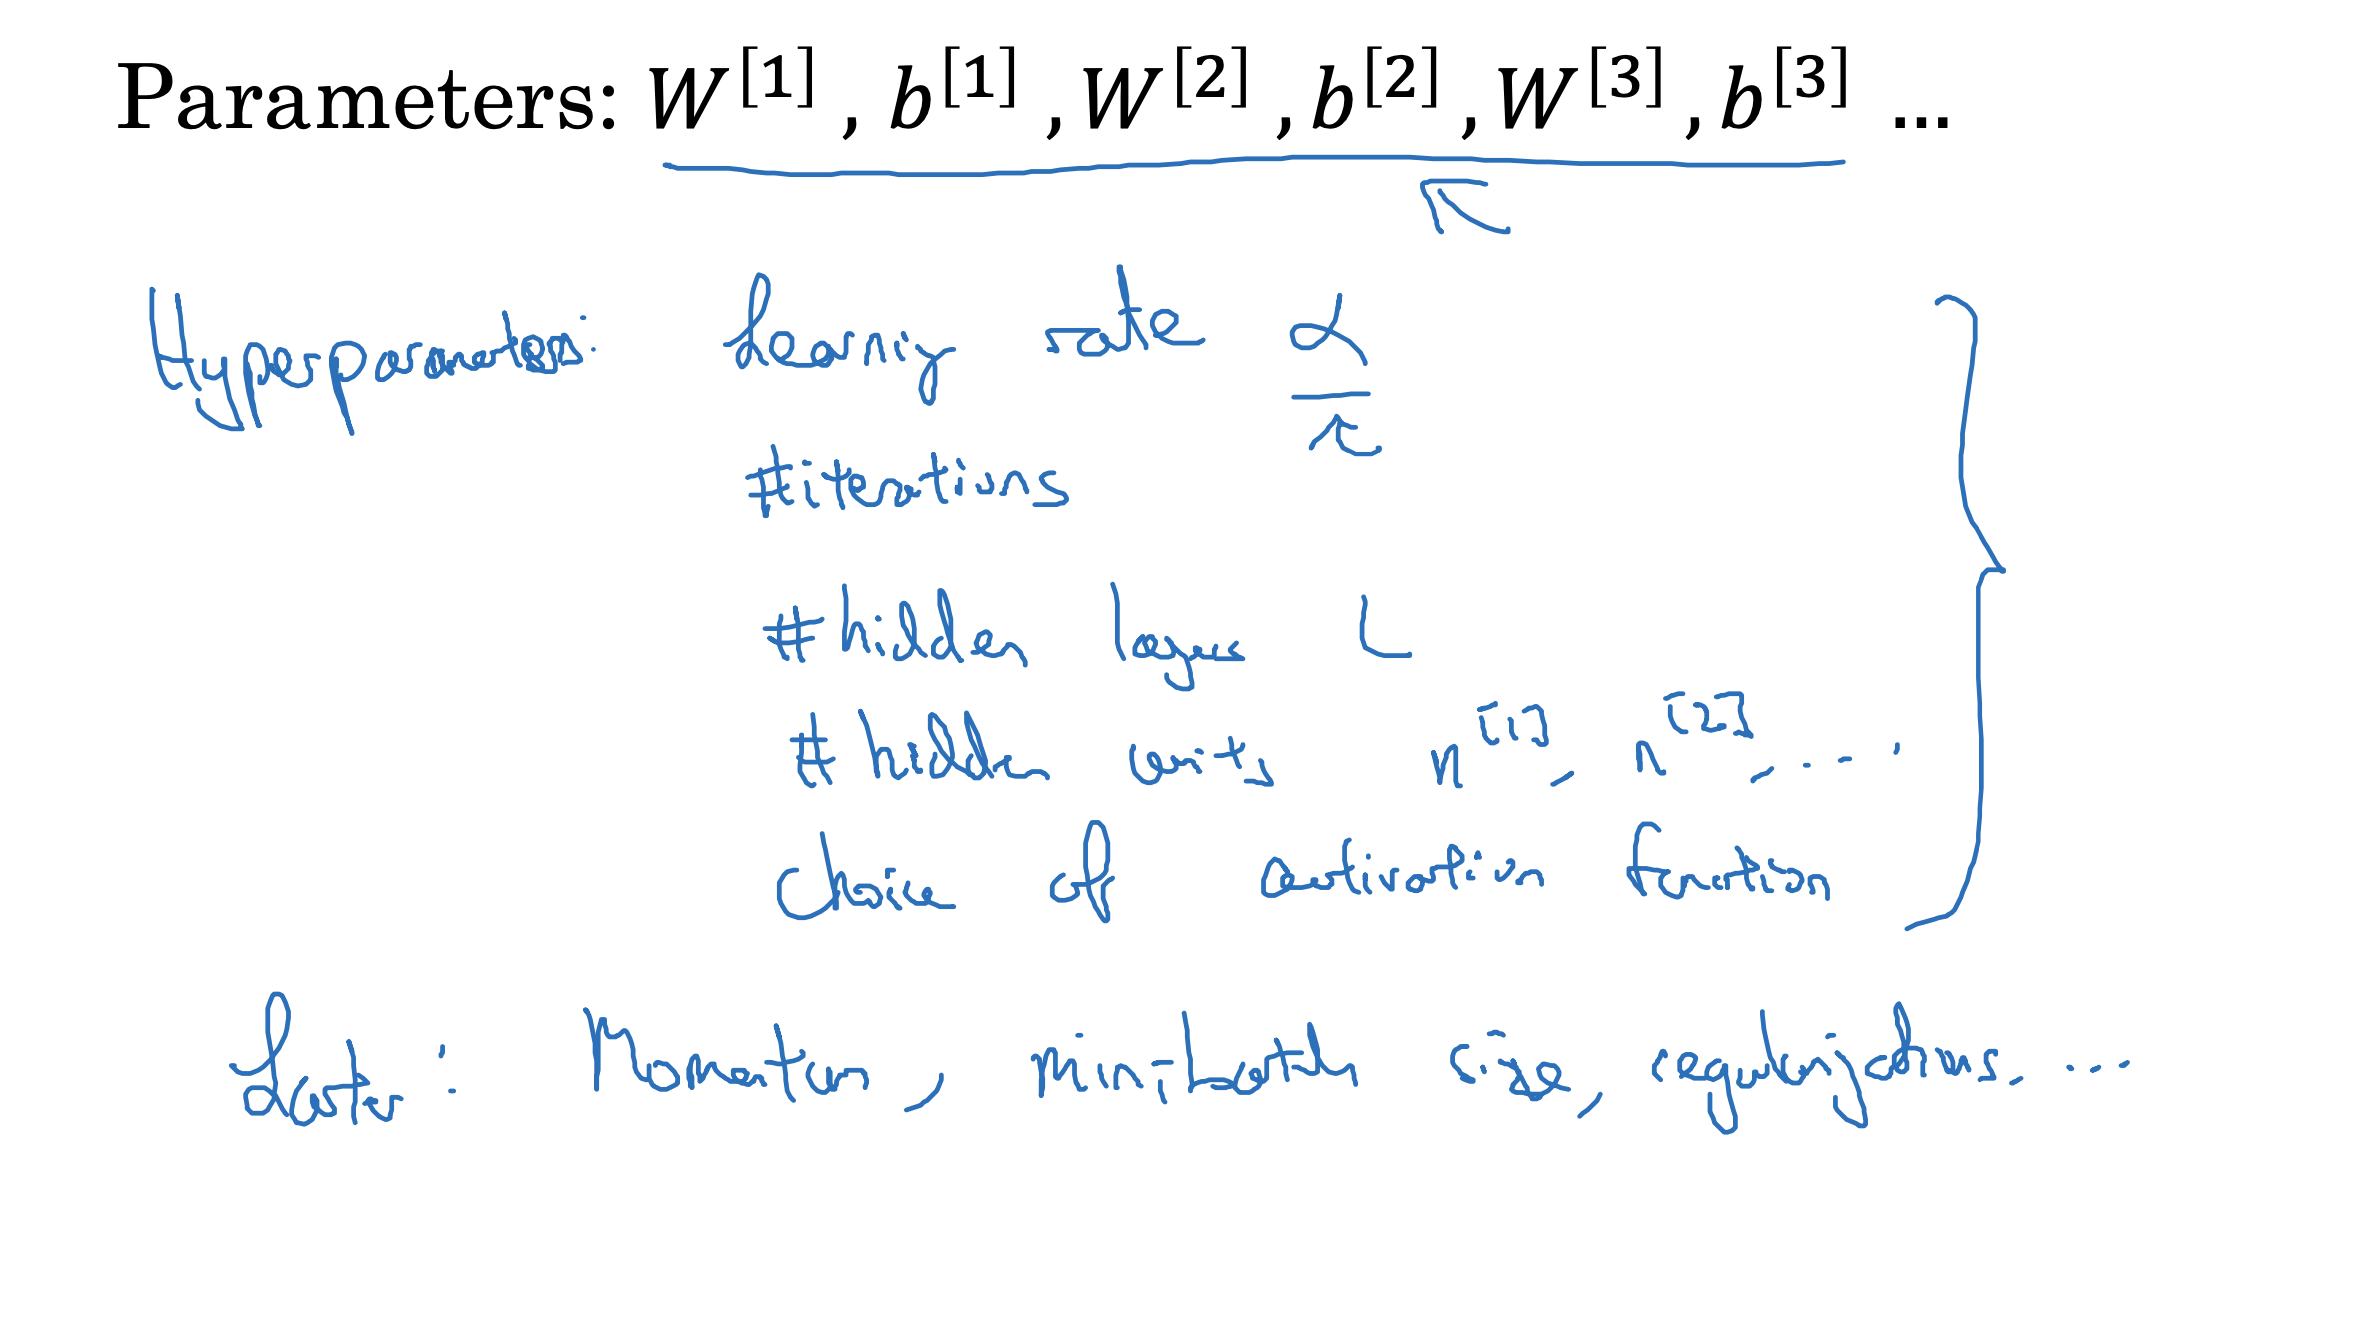 Parameters: W^[1], b^[1], W^[2], b^[2], W^[3], b^[3] ...
Hyperparameters: learning rate α
#iterations
#hidden layers L
#hidden units n^[1], n^[2], ....
choice of activation function
Later: Momentum, mini-batch size, regularizations, ...